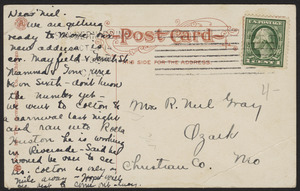 Dear Neil.
We are getting
ready to move our
new address is
cor. Mayfield & Tenth St
on Sixth - don't know
the number yet -
we went to Colton to
carnival last night
and ran into
Huston he is working
in Riverside - Said he
would be over to see
us. Colton is only
mile away - Hope
Post Card
THIS SIDE FOR THE ADDRESS
Mrs. R. Neil Gray
Ozark
Christian Co. Mo
4